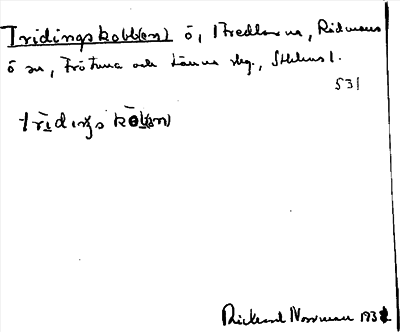 Tridingskobb(en) ö, i Fredlarna, Rådmans
ö sn, Frötuna och Länna skg., Sthlms l.
531
tridiŋs kob(ən)
Rickard Norrman 1932